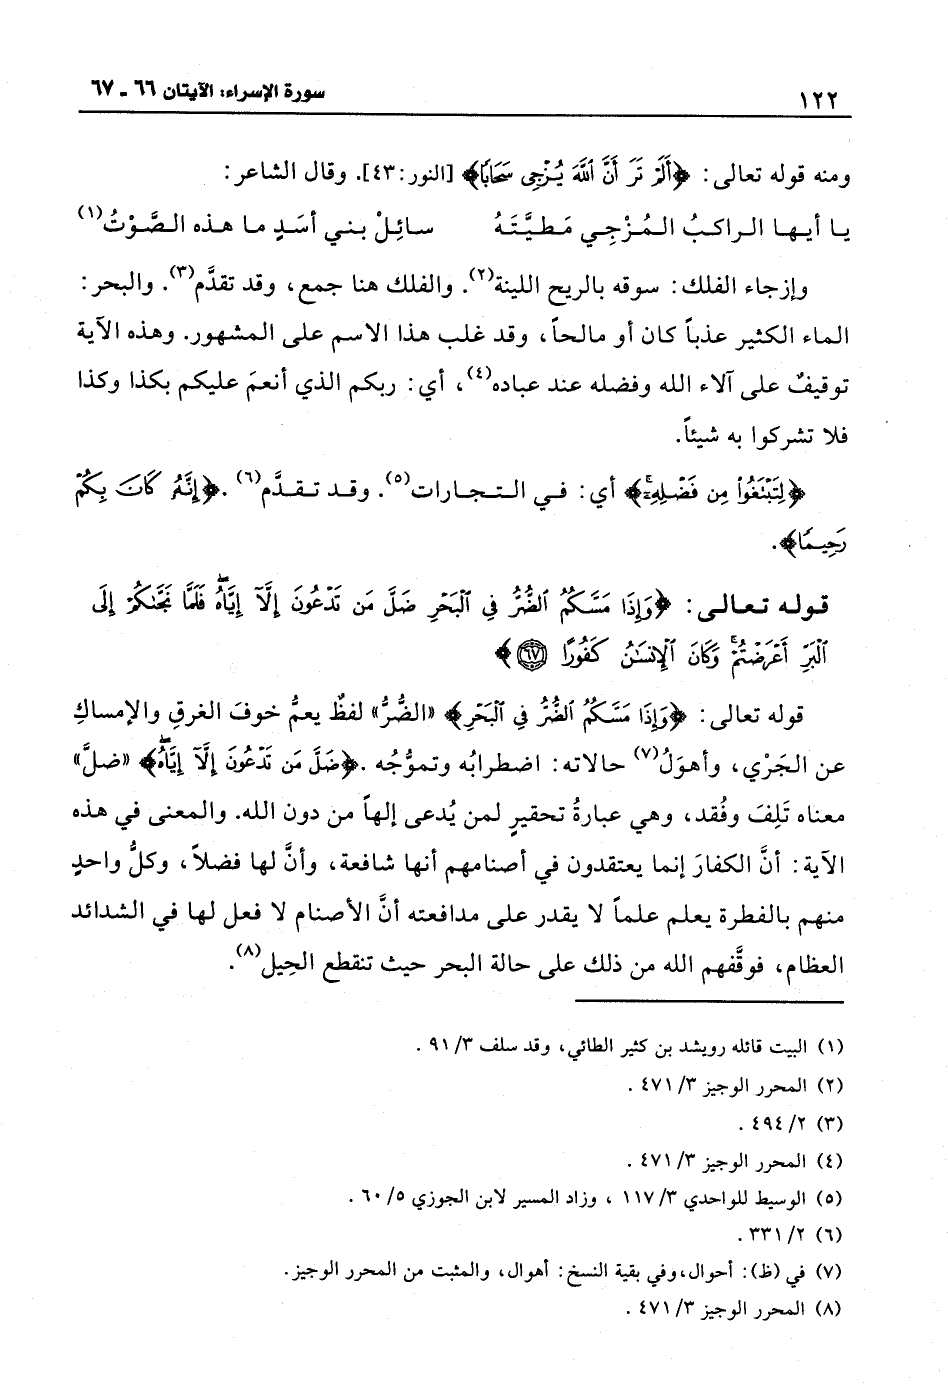 ١٢٢ سورة الإسراء: الآيتان ٦٦ ـ ٦٧
ومنه قوله تعالى: ﴿أَلَمْ تَرَ أَنَّ ٱللَّهَ يُزْجِى سَحَابًا﴾ [النور:٤٣]. وقال الشاعر:
يا أيها الراكبُ المُزْجِي مَطيَّتَهُ سائِلْ بني أسَدٍ ما هذه الصَّوْتُ(١)
وإزجاء الفلك: سوقه بالريح اللينة(٢). والفلك هنا جمع، وقد تقدَّم(٣). والبحر:
الماء الكثير عذباً كان أو مالحاً، وقد غلب هذا الاسم على المشهور. وهذه الآية
توقيفٌ على آلاء الله وفضله عند عباده(٤)، أي: ربكم الذي أنعمَ عليكم بكذا وكذا
فلا تشركوا به شيئاً.
﴿لِتَبْتَغُوا۟ مِن فَضْلِهِۦٓ﴾ أي: في التجارات(٥). وقد تقدَّم(٦). ﴿إِنَّهُۥ كَانَ بِكُمْ
رَحِيمًا﴾.
قوله تعالى: ﴿وَإِذَا مَسَّكُمُ ٱلضُّرُّ فِى ٱلْبَحْرِ ضَلَّ مَن تَدْعُونَ إِلَّآ إِيَّاهُ ۖ فَلَمَّا نَجَّىٰكُمْ إِلَى
ٱلْبَرِّ أَعْرَضْتُمْ ۚ وَكَانَ ٱلْإِنسَـٰنُ كَفُورًا ٦٧﴾
قوله تعالى: ﴿وَإِذَا مَسَّكُمُ ٱلضُّرُّ فِى ٱلْبَحْرِ﴾ «الضُّرُّ» لفظٌ يعمُّ خوفَ الغرقِ والإمساكِ
عن الجَرْي، وأهوَلُ(٧) حالاته: اضطرابُه وتموُّجُه. ﴿ضَلَّ مَن تَدْعُونَ إِلَّآ إِيَّاهُ ۖ﴾ «ضلَّ»
معناه تَلِفَ وفُقد، وهي عبارةُ تحقيرٍ لمن يُدعى إلهاً من دون الله. والمعنى في هذه
الآية: أنَّ الكفارَ إنما يعتقدون في أصنامهم أنها شافعة، وأنَّ لها فضلاً، وكلُّ واحدٍ
منهم بالفطرة يعلم علماً لا يقدر على مدافعته أنَّ الأصنام لا فعل لها في الشدائد
العظام، فوقَّفهم الله من ذلك على حالة البحر حيث تنقطع الحِيل(٨).
(١) البيت قائله رويشد بن كثير الطائي، وقد سلف ٣/ ٩١ .
(٢) المحرر الوجيز ٣/ ٤٧١ .
(٣) ٢/ ٤٩٤ .
(٤) المحرر الوجيز ٣/ ٤٧١ .
(٥) الوسيط للواحدي ٣/ ١١٧ ، وزاد المسير لابن الجوزي ٥/ ٦٠ .
(٦) ٢/ ٣٣١ .
(٧) في (ظ): أحوال، وفي بقية النسخ: أهوال، والمثبت من المحرر الوجيز.
(٨) المحرر الوجيز ٣/ ٤٧١ .